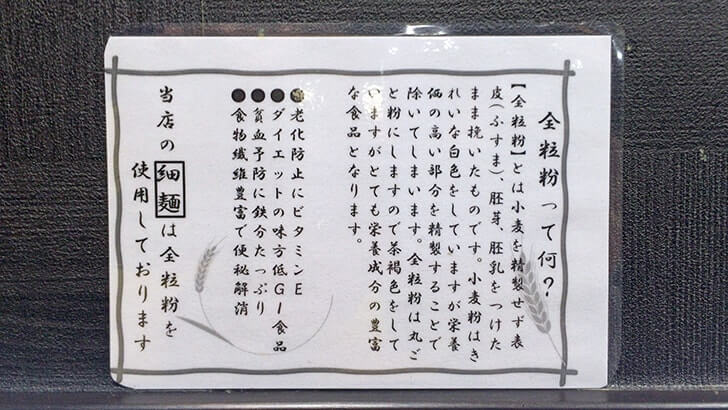 全粒粉って何?
【全粒粉】とは小麦を精製せず表
皮(ふすま)、胚芽、胚乳をつけた
まま挽いたものです。小麦粉はき
れいな白色をしていますが栄養
価の高い部分を精製することで
除いてしまいます。全粒粉は丸ご
と粉にしますので茶褐色をして
いますがとても栄養成分の豊富
な食品となります。
●老化防止にビタミンE
●ダイエットの味方低GI食品
●貧血予防に鉄分たっぷり
●食物繊維豊富で便秘解消
当店の細麺は全粒粉を
使用しております